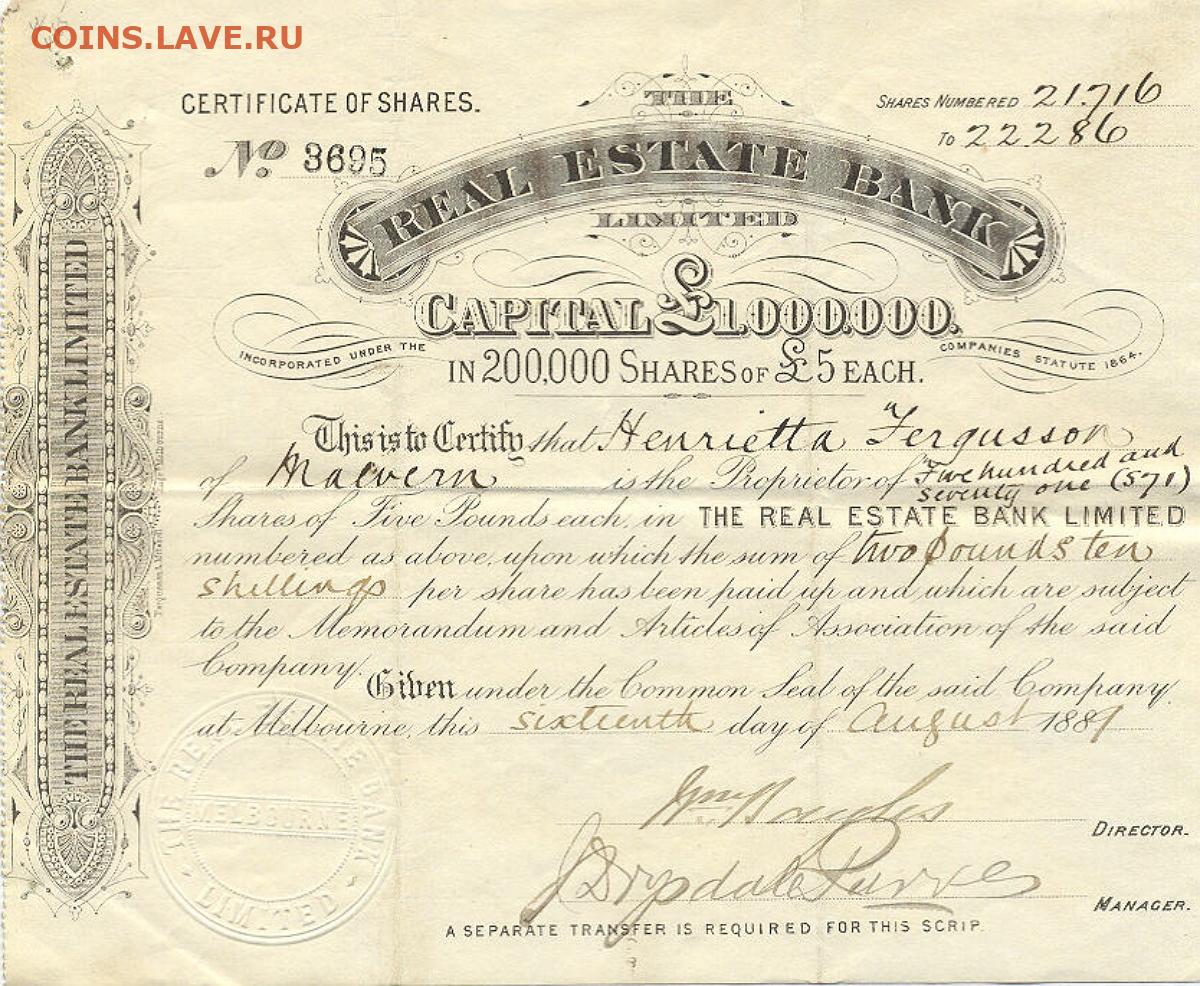 COINS.LAVE.RU
CERTIFICATE OF SHARES.
No. 3695
SHARES NUMBERED 21.716
TO 22286
THE
REAL ESTATE BANK
LIMITED
CAPITAL £1.000.000.
INCORPORATED UNDER THE COMPANIES STATUTE 1864.
IN 200,000 SHARES OF £5 EACH.
This is to Certify that Henrietta Fergusson
of Malvern is the Proprietor of Five hundred and
seventy one (571)
Shares of Five Pounds each, in THE REAL ESTATE BANK LIMITED
numbered as above, upon which the sum of two pounds ten
shillings per share has been paid up and which are subject
to the Memorandum and Articles of Association of the said
Company.
Given under the Common Seal of the said Company
at Melbourne, this sixteenth day of August 1889
DIRECTOR.
J Drysdale Purves
MANAGER.
A SEPARATE TRANSFER IS REQUIRED FOR THIS SCRIP.
THE REAL ESTATE BANK LIMITED
THE REAL ESTATE BANK
MELBOURNE
LIMITED